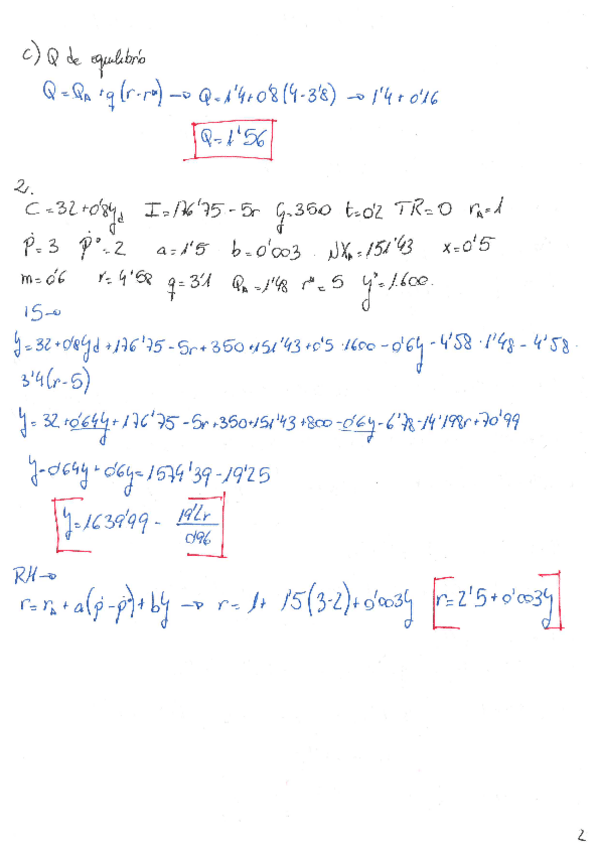 c) Q de equilibrio
Q = Q_A + q (r - r*) → Q = 1'4 + 0'8 (4 - 3'8) → 1'4 + 0'16
Q = 1'56
2.
C = 32 + 0'8y_d I = 176'75 - 5r G = 350 t = 0'2 TR = 0 r_A = 1
Ṗ = 3 Ṗ° = 2 a = 1'5 b = 0'003 NX_A = 151'43 x = 0'5
m = 0'6 r = 4'58 q = 3'1 Q_A = 1'48 r* = 5 y* = 1.600.
IS →
y = 32 + 0'8yd + 176'75 - 5r + 350 + 151'43 + 0'5 · 1600 - 0'6y - 4'58 · 1'48 - 4'58 ·
3'4 (r - 5)
y = 32 + 0'64y + 176'75 - 5r + 350 + 151'43 + 800 - 0'6y - 6'78 - 14'198r + 70'99
y - 0'64y + 0'6y = 1574'39 - 19'25
y = 1639'99 - 19'2r / 0'96
RH →
r = r_A + a (ṗ - ṗ°) + by → r = 1 + 1'5 (3 - 2) + 0'003y r = 2'5 + 0'003y
2